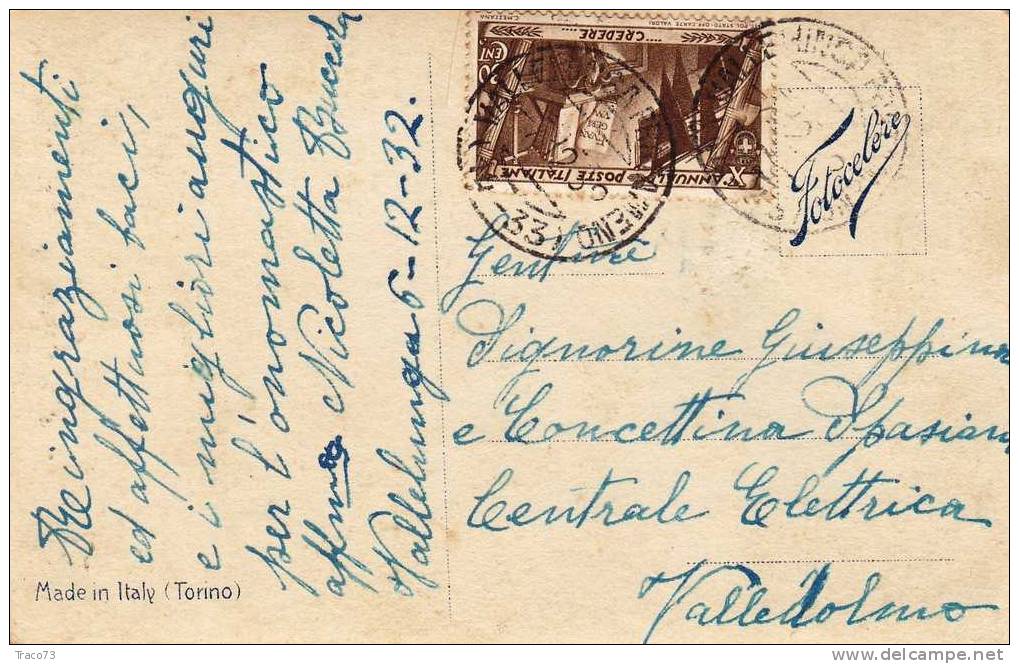 Reingraziamenti
ed affettuosi baci,
e i migliori auguri
per l'onomastico
affma Nicoletta Buccola
Vallelunga 6-12-32.
Made in Italy (Torino)
C. MEZZANA
POL. STATO-OFF. CARTE VALORI
CREDERE ....
20
CENT
X° ANNUALE
POSTE ITALIANE
33
Fotocelere
Gentme
Signorine Giuseppina
e Concettina Spasian
Centrale Elettrica
Valledolmo
Traco73
delcampe.net